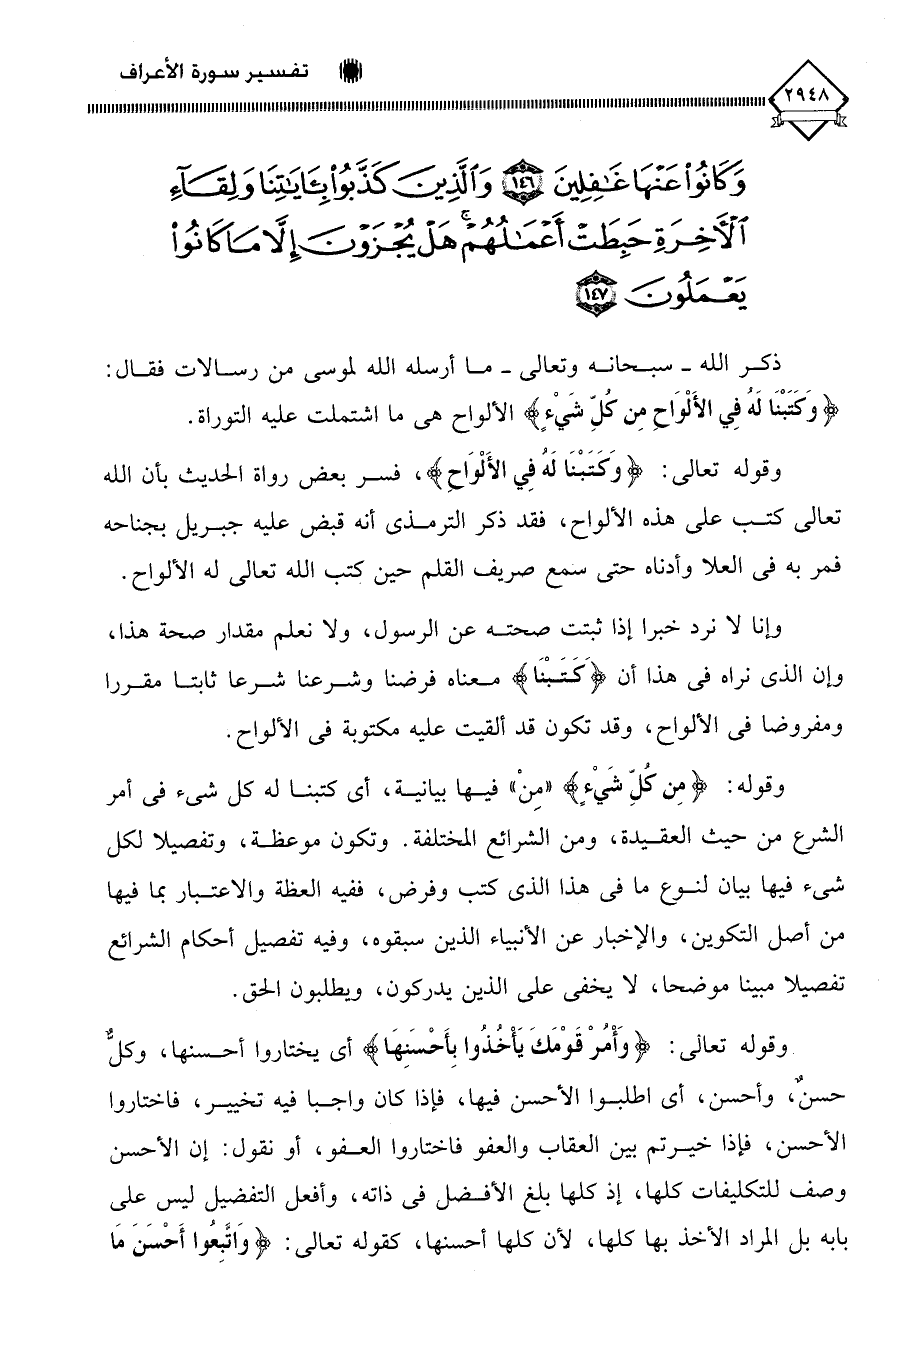 تفسير سورة الأعراف
٢٩٤٨
وَكَانُوا۟ عَنْهَا غَـٰفِلِينَ ١٤٦ وَٱلَّذِينَ كَذَّبُوا۟ بِـَٔايَـٰتِنَا وَلِقَآءِ
ٱلْـَٔاخِرَةِ حَبِطَتْ أَعْمَـٰلُهُمْ ۚ هَلْ يُجْزَوْنَ إِلَّا مَا كَانُوا۟
يَعْمَلُونَ ١٤٧
ذكر الله ـ سبحانه وتعالى ـ ما أرسله الله لموسى من رسالات فقال:
﴿وَكَتَبْنَا لَهُ فِي الأَلْوَاحِ مِن كُلِّ شَيْءٍ﴾ الألواح هى ما اشتملت عليه التوراة.
وقوله تعالى: ﴿وَكَتَبْنَا لَهُ فِي الأَلْوَاحِ﴾، فسر بعض رواة الحديث بأن الله
تعالى كتب على هذه الألواح، فقد ذكر الترمذى أنه قبض عليه جبريل بجناحه
فمر به فى العلا وأدناه حتى سمع صريف القلم حين كتب الله تعالى له الألواح.
وإنا لا نرد خبرا إذا ثبتت صحته عن الرسول، ولا نعلم مقدار صحة هذا،
وإن الذى نراه فى هذا أن ﴿كَتَبْنَا﴾ معناه فرضنا وشرعنا شرعا ثابتا مقررا
ومفروضا فى الألواح، وقد تكون قد ألقيت عليه مكتوبة فى الألواح.
وقوله: ﴿مِن كُلِّ شَيْءٍ﴾ «مِنْ» فيها بيانية، أى كتبنا له كل شىء فى أمر
الشرع من حيث العقيدة، ومن الشرائع المختلفة. وتكون موعظة، وتفصيلا لكل
شىء فيها بيان لنوع ما فى هذا الذى كتب وفرض، ففيه العظة والاعتبار بما فيها
من أصل التكوين، والإخبار عن الأنبياء الذين سبقوه، وفيه تفصيل أحكام الشرائع
تفصيلا مبينا موضحا، لا يخفى على الذين يدركون، ويطلبون الحق.
وقوله تعالى: ﴿وَأْمُرْ قَوْمَكَ يَأْخُذُوا بِأَحْسَنِهَا﴾ أى يختاروا أحسنها، وكلٌّ
حسنٌ، وأحسن، أى اطلبوا الأحسن فيها، فإذا كان واجبا فيه تخيير، فاختاروا
الأحسن، فإذا خيرتم بين العقاب والعفو فاختاروا العفو، أو نقول: إن الأحسن
وصف للتكليفات كلها، إذ كلها بلغ الأفضل فى ذاته، وأفعل التفضيل ليس على
بابه بل المراد الأخذ بها كلها، لأن كلها أحسنها، كقوله تعالى: ﴿وَاتَّبِعُوا أَحْسَنَ مَا